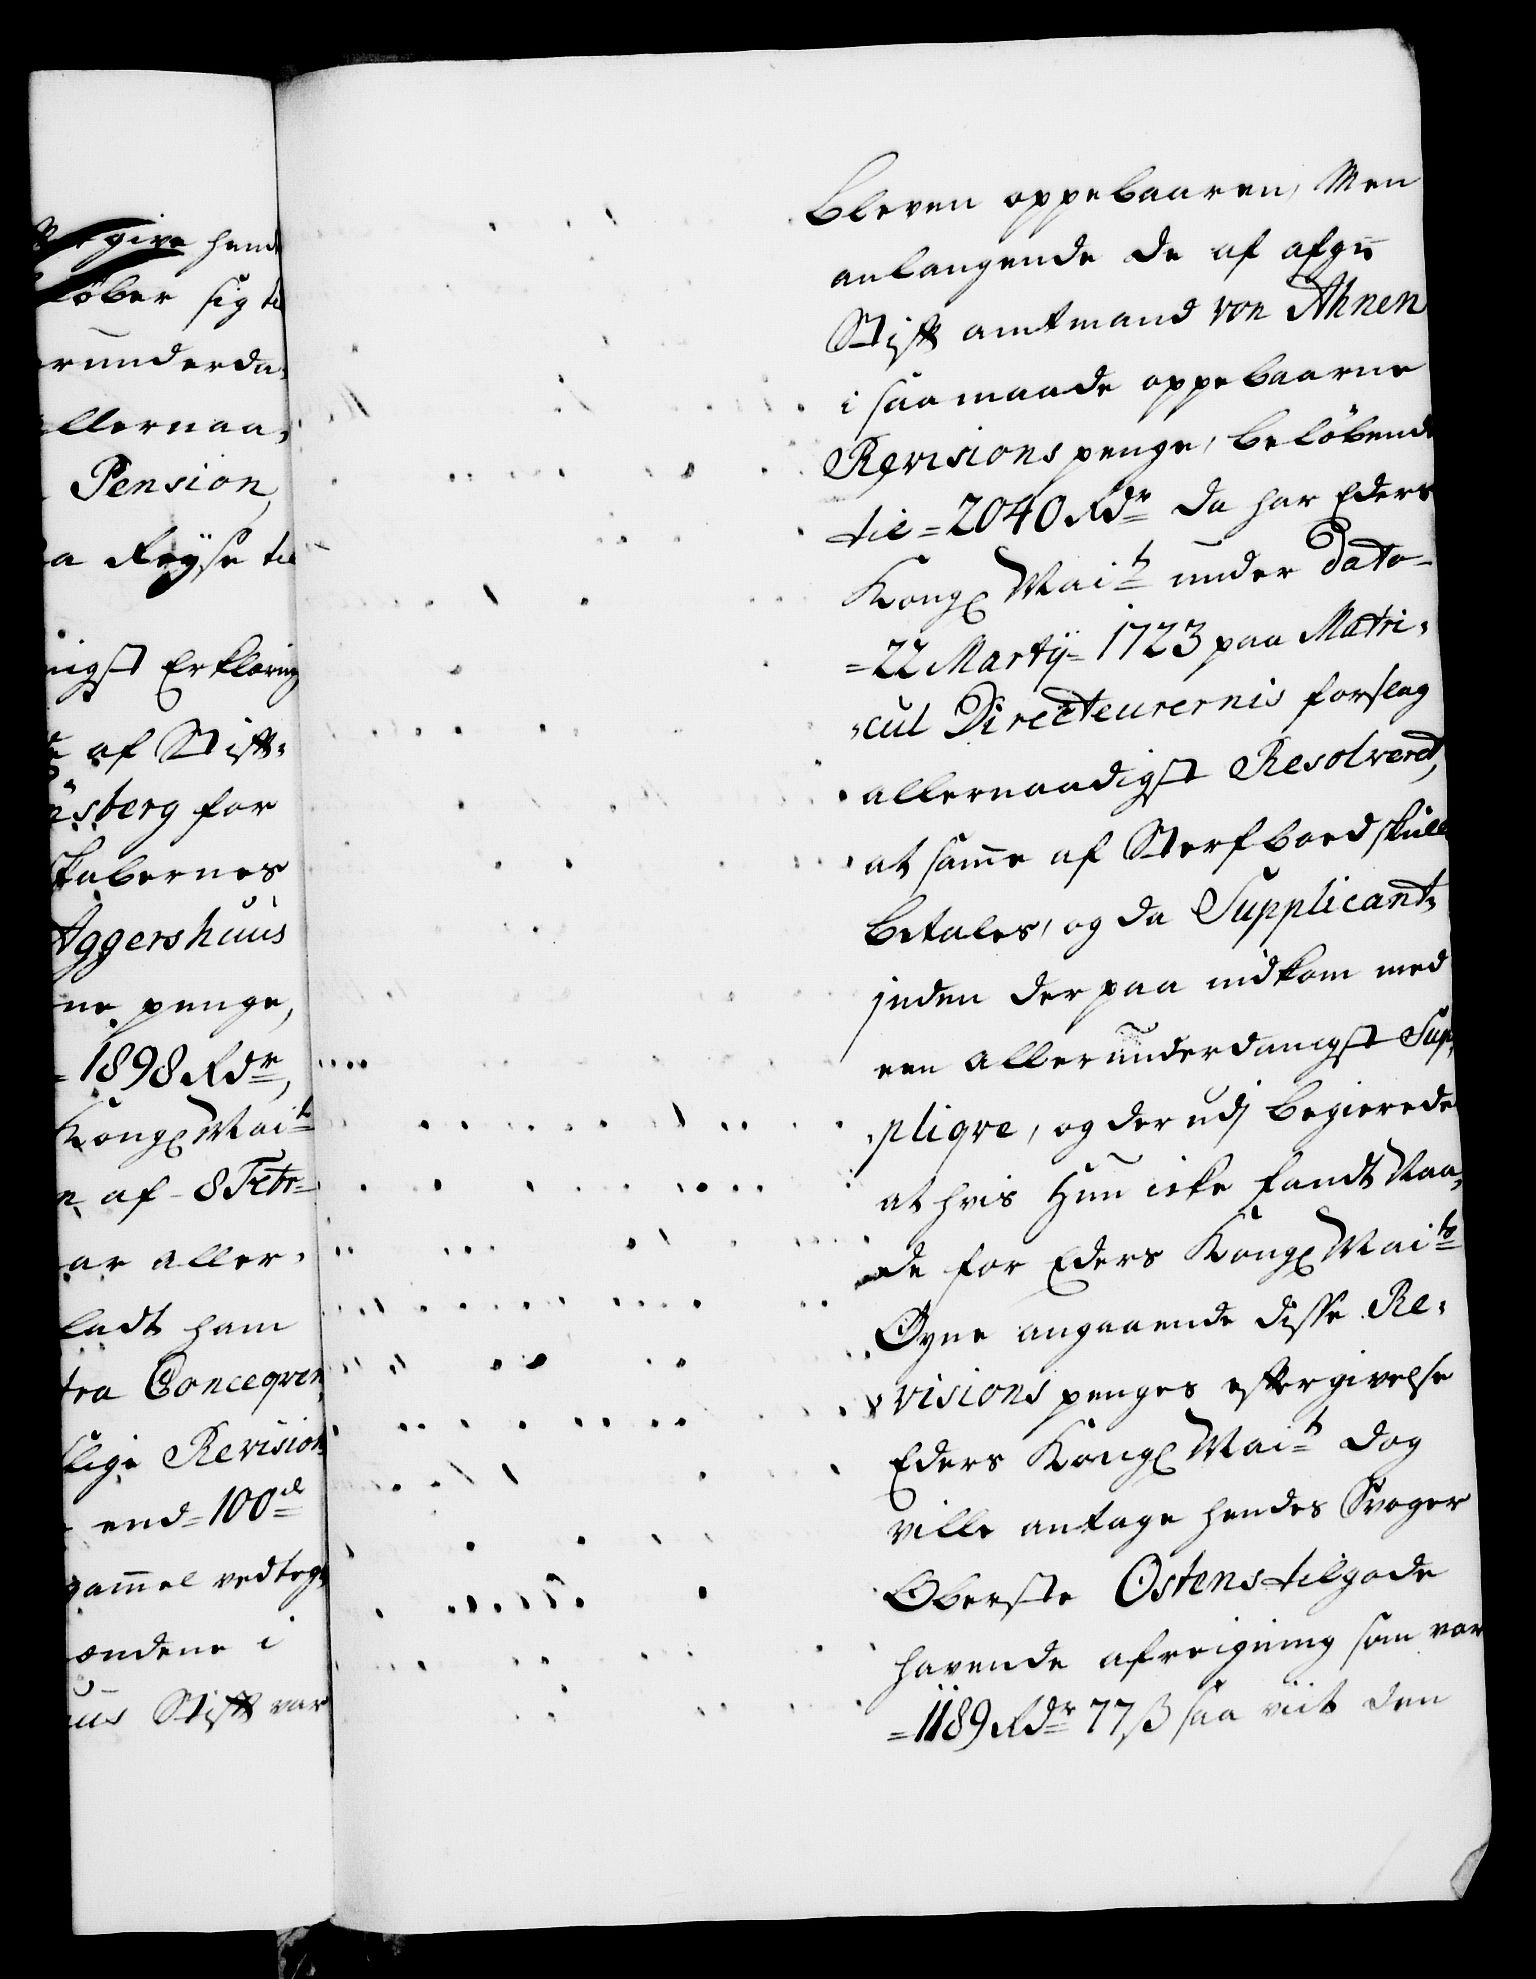 give hend
løber sig til
runderda-
llernaa-
Pension,
a Reyse til
nigst Erklæring
af Stift-
nsberg for
skabernes
Aggershuus
ne penge,
= 1898 Rdr,
Kongl Mait
af - 8 Febr
ar aller-
ladt ham
tra Conceqven
slige Revision
end = 100de
gammel vedteg
ændene i
uus Stift var
bleven oppebaaren, Men
anlangende de af afgn
Stiftamtmand von Ahnen
i saa maade oppebaarne
Revisions penge, beløbende
til = 2040 Rdr da har Eders
Kongl Mait under Dato-
= 22 Martij = 1723 paa Matri-
cul Directeurernis forslag
allernaadigst Resolveret,
at samme af Sterfboed skulle
betales, og da Supplicant-
inden der paa indkom med
een allerunderdanigst Sup-
pliqve, og der udj begierede
at hvis Hun icke fandt Naa-
de for Eders Kongl Maits
Øyne angaaende disse Re-
visions penges eftergivelse
Eders Kongl Mait dog
ville antage hendes Svoger
Oberste Ostens tilgode
havende afreigning som var
= 1189 Rdr 77 ß saa viit den